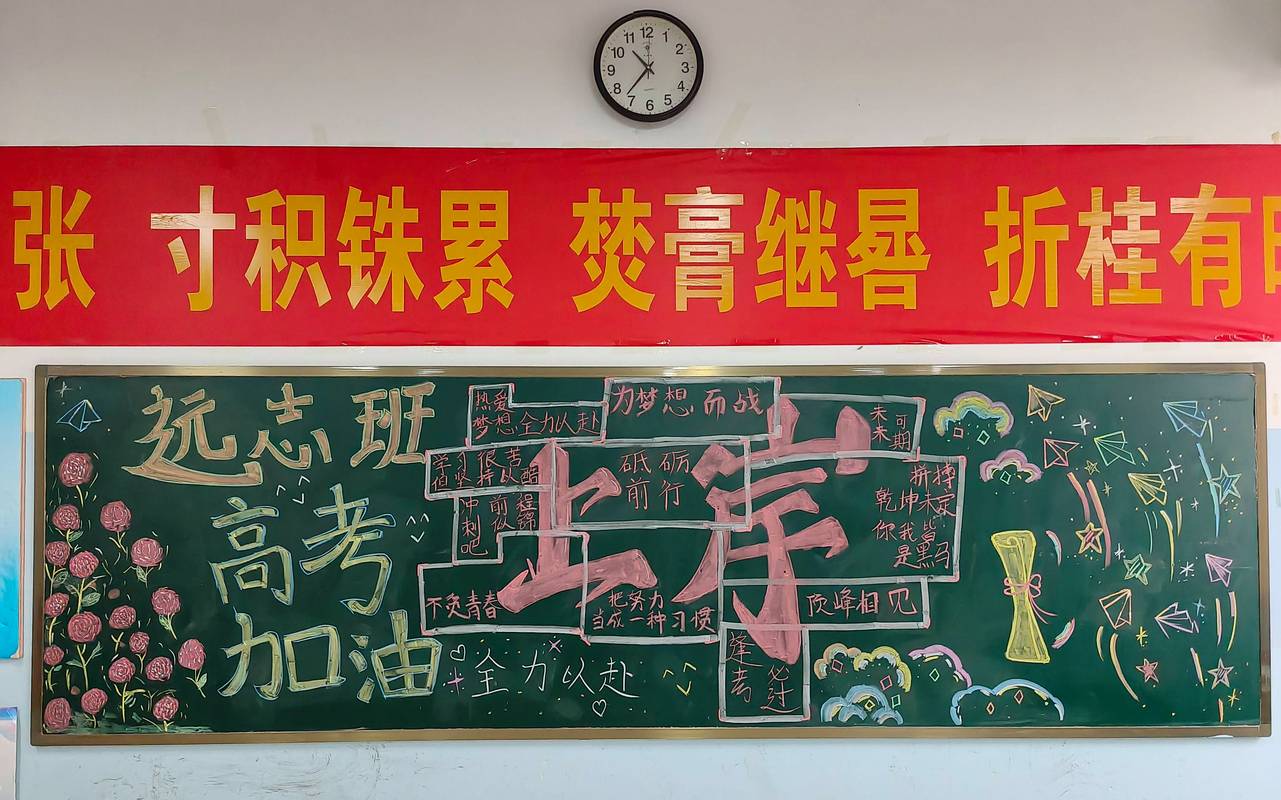 12
11
1
10
2
9
3
8
4
7
5
6
张 寸积铢累 焚膏继晷 折桂有时
远志班
高考
加油
热爱
梦想 全力以赴
为梦想而战
未来可期
学习很苦
坚持以酷
砥砺
前行
冲刺吧
前程似锦
上岸
拼搏
乾坤未定
你我皆是黑马
不负青春
把努力
当成一种习惯
顶峰相见
逢考必过
全力以赴